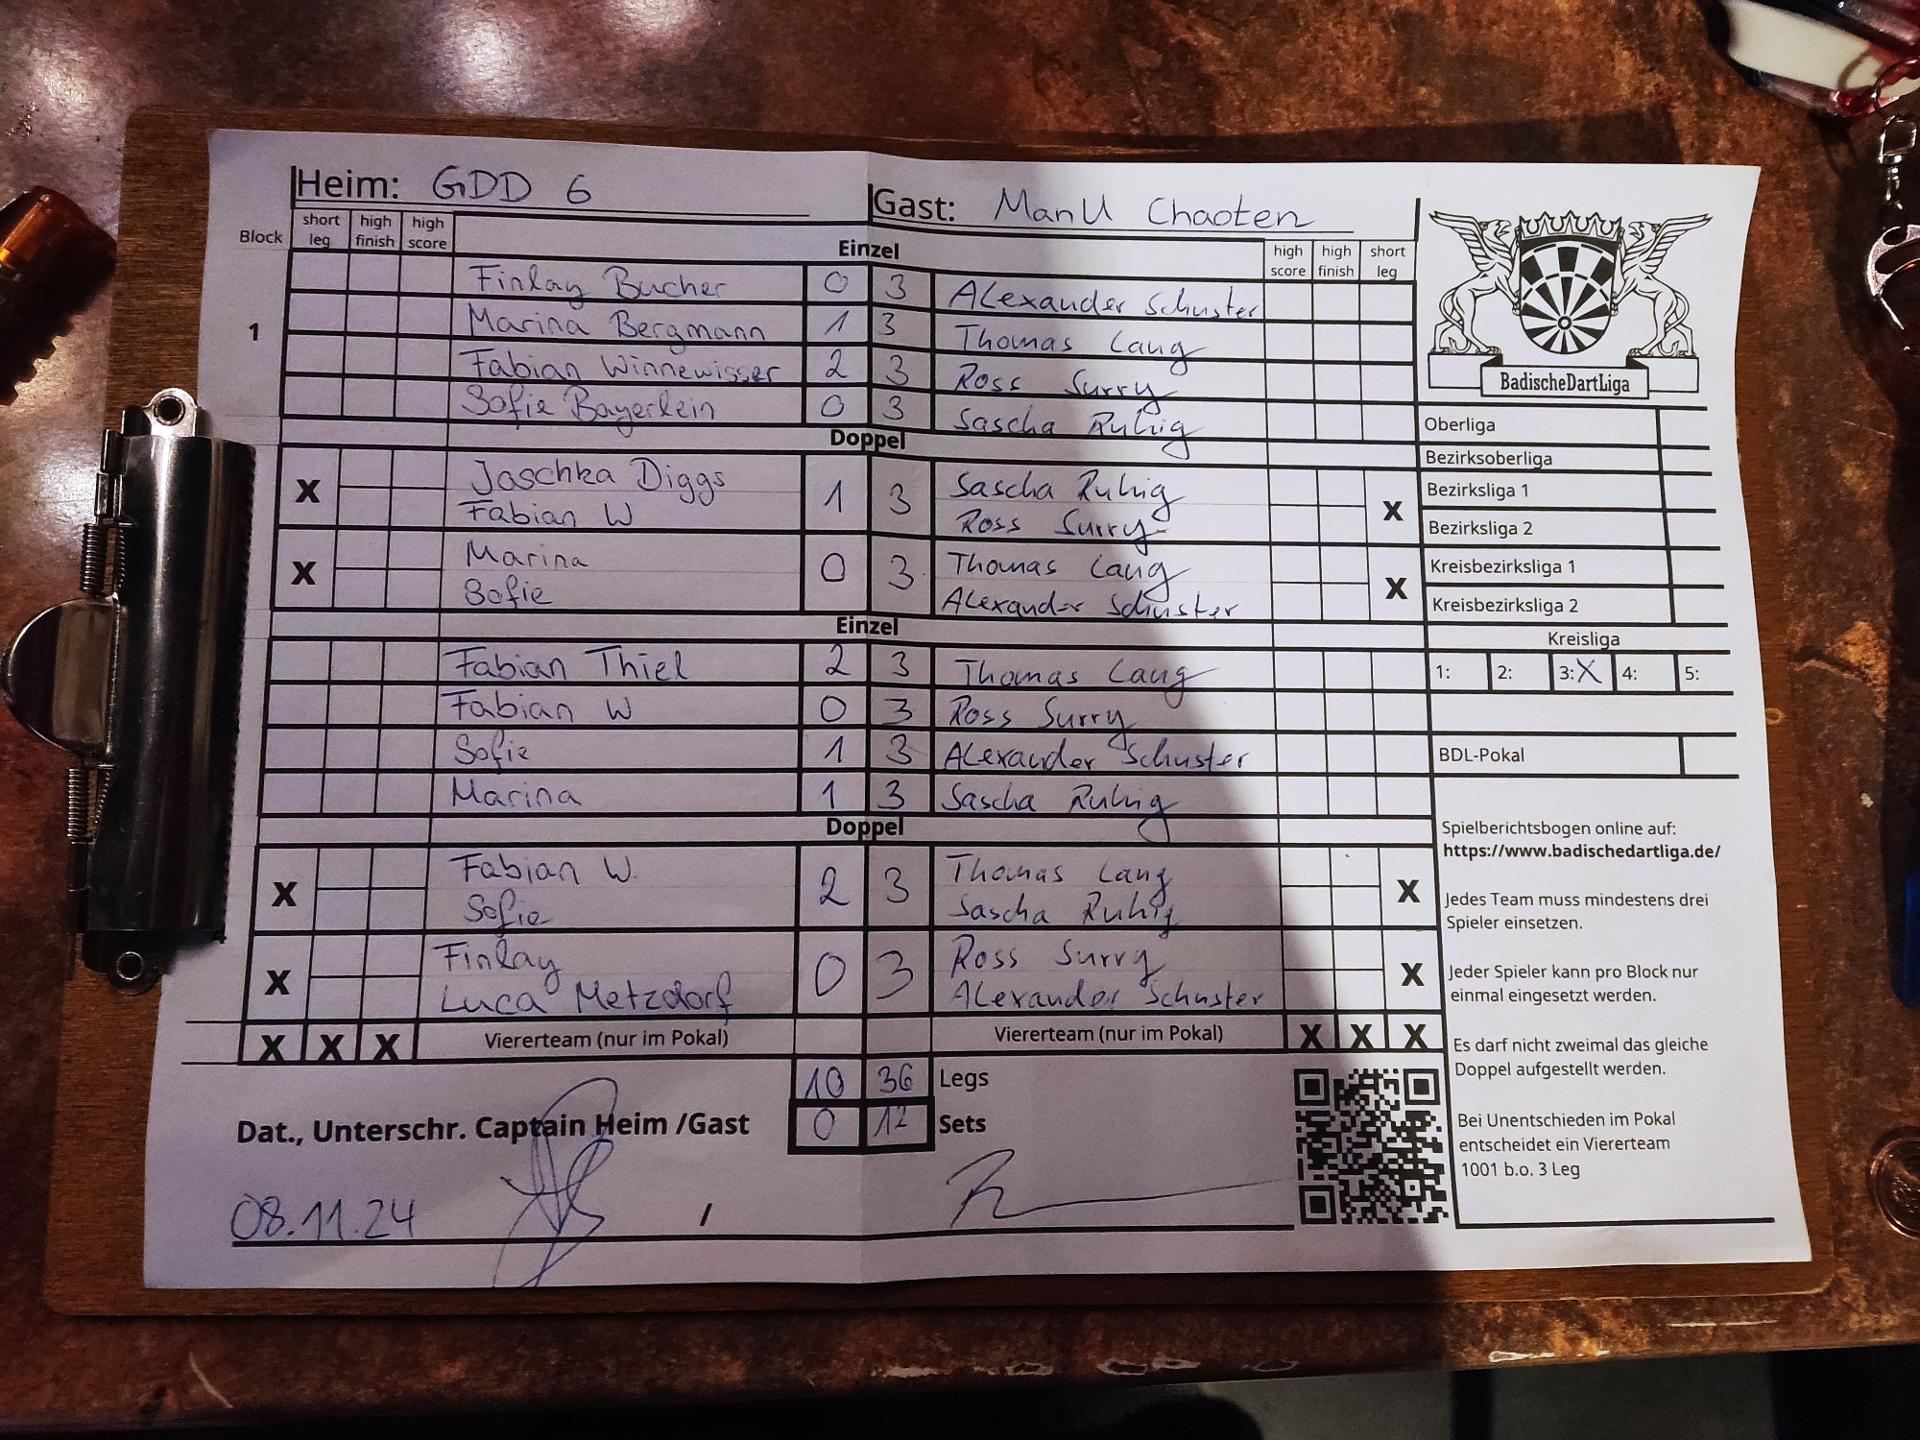 Heim: GDD 6 Gast: ManU Chaoten
Block short leg high finish high score Einzel high score high finish short leg
Finlay Bucher 0 3 Alexander Schuster
1 Marina Bergmann 1 3 Thomas Lang
Fabian Winnewisser 2 3 Ross Surry
Sofie Bayerlein 0 3 Sascha Ruhig
Doppel
X Jaschka Diggs 1 3 Sascha Ruhig X
Fabian W Ross Surry
X Marina 0 3 Thomas Lang X
Sofie Alexander Schuster
Einzel
Fabian Thiel 2 3 Thomas Lang
Fabian W 0 3 Ross Surry
Sofie 1 3 Alexander Schuster
Marina 1 3 Sascha Ruhig
Doppel
X Fabian W. 2 3 Thomas Lang X
Sofie Sascha Ruhig
X Finlay 0 3 Ross Surry X
Luca Metzdorf Alexander Schuster
X X X Viererteam (nur im Pokal) Viererteam (nur im Pokal) X X X
10 36 Legs
Dat., Unterschr. Captain Heim /Gast 0 12 Sets
08.11.24 /
BadischeDartLiga
Oberliga
Bezirksoberliga
Bezirksliga 1
Bezirksliga 2
Kreisbezirksliga 1
Kreisbezirksliga 2
Kreisliga
1: 2: 3: X 4: 5:
BDL-Pokal
Spielberichtsbogen online auf:
https://www.badischedartliga.de/
Jedes Team muss mindestens drei
Spieler einsetzen.
Jeder Spieler kann pro Block nur
einmal eingesetzt werden.
Es darf nicht zweimal das gleiche
Doppel aufgestellt werden.
Bei Unentschieden im Pokal
entscheidet ein Viererteam
1001 b.o. 3 Leg